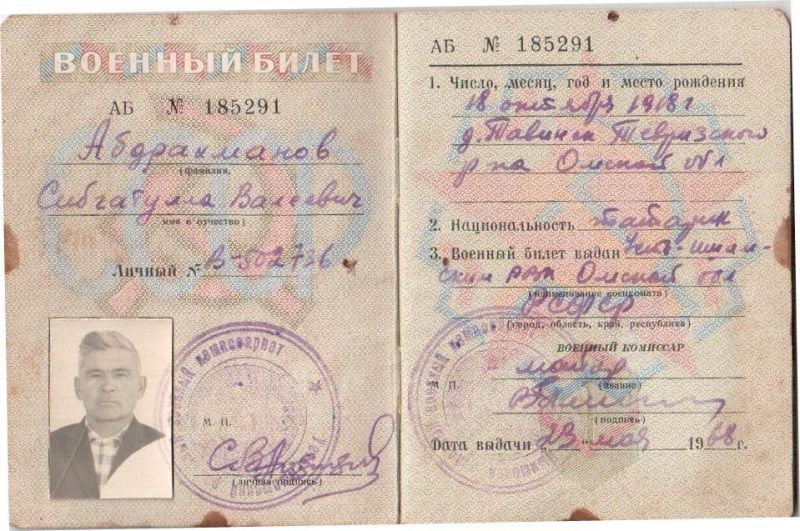 ВОЕННЫЙ БИЛЕТ
АБ № 185291
Абдрахманов
(фамилия,
Сибгатулла Валеевич
имя и отчество)
Личный № В-502736
М П.
(личная подпись)
АБ № 185291
1. Число, месяц, год и место рождения
18 октября 1918 г
д. Тавинск Тевризского
р-на Омской обл
2. Национальность татарин
3. Военный билет выдан Усть-Ишим-
ским РВК Омской обл
(наименование военкомата)
РСФСР
(город, область, край, республика)
ВОЕННЫЙ КОМИССАР
майор
М П.
(звание)
(подпись)
Дата выдачи „29" мая 1968 г.